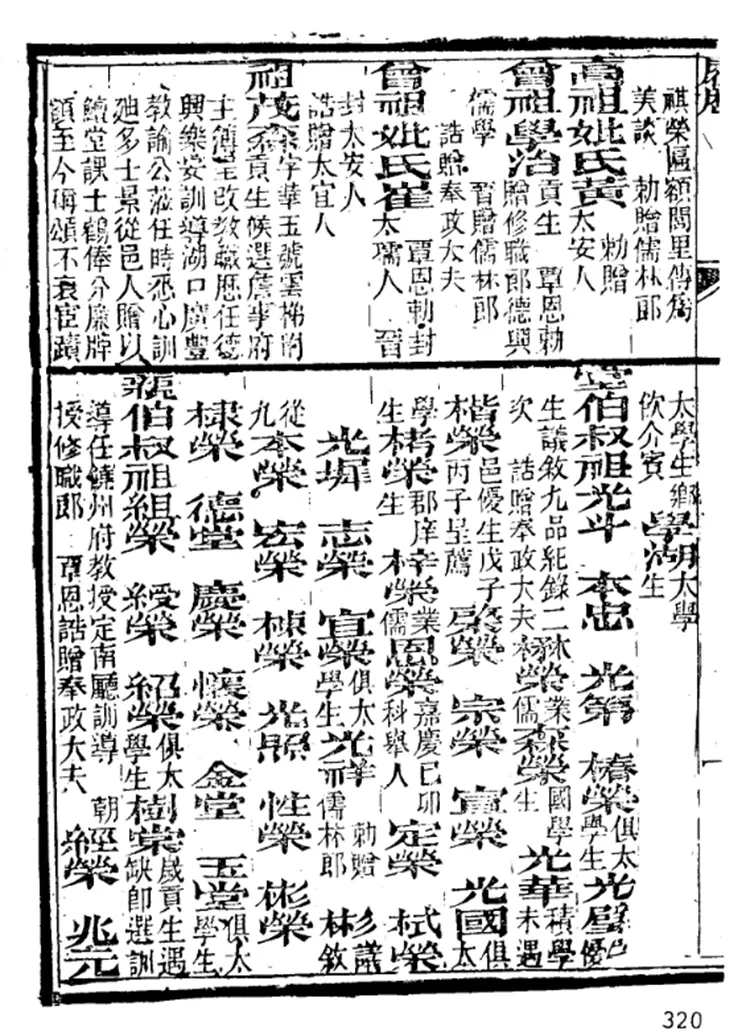 祺榮匾額閭里傳爲
美談 勅贈儒林郎
高祖妣氏黃勅贈
太安人
曾祖學治貢生 覃恩勅
贈修職郎德興
儒學 晉贈儒林郎
誥贈奉政大夫
曾祖妣氏崔覃恩勅封
太孺人 晉
封太安人
誥贈太宜人
祖茂森字華五號雲梯附
貢生候選詹事府
主簿呈改教職歷任德
興樂安訓導湖口廣豐
教諭公蒞任時悉心訓
廸多士景從邑人贈以
鱣堂課士鶴俸分廉牌
額至今稱頌不衰宦蹟
太學生鄉
飲介賓學湖太學
生
堂伯叔祖光斗 本忠 光第 椿榮俱太
學生光璧
邑優
生議敘九品紀錄二
次 誥贈奉政大夫
榮業
儒森榮國學
生光華積學
未遇
楷榮邑優生戊子
丙子呈薦榮 宗榮 富榮 光國俱
太
學
生楮榮郡庠
生 梓榮業
儒恩榮嘉慶己卯
科舉人定榮 栻榮
光墀 志榮 宜榮俱太
學生光祥勅贈
儒林郎彬議
敘
從
九本榮 宏榮 棟榮 光照 性榮 彬榮
棣榮 德堂 慶榮 懷榮 金堂 玉堂俱太
學生
親伯叔祖組榮 綬榮 紹榮俱太
學生樹棠歲貢生遇
缺卽選訓
導任饒州府教授定南廳訓導 朝
授修職郎 覃恩誥贈奉政大夫
經榮 兆元
320